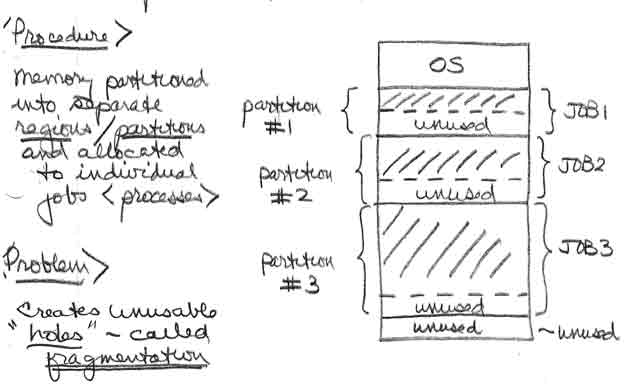 Procedure >
Memory partitioned
into separate
regions / partitions
and allocated
to individual
jobs < processes >
Problem >
Creates unusable
"holes" ~ called
fragmentation
OS
partition
#1
unused
JOB1
partition
#2
unused
JOB2
partition
#3
unused
JOB3
unused
~unused